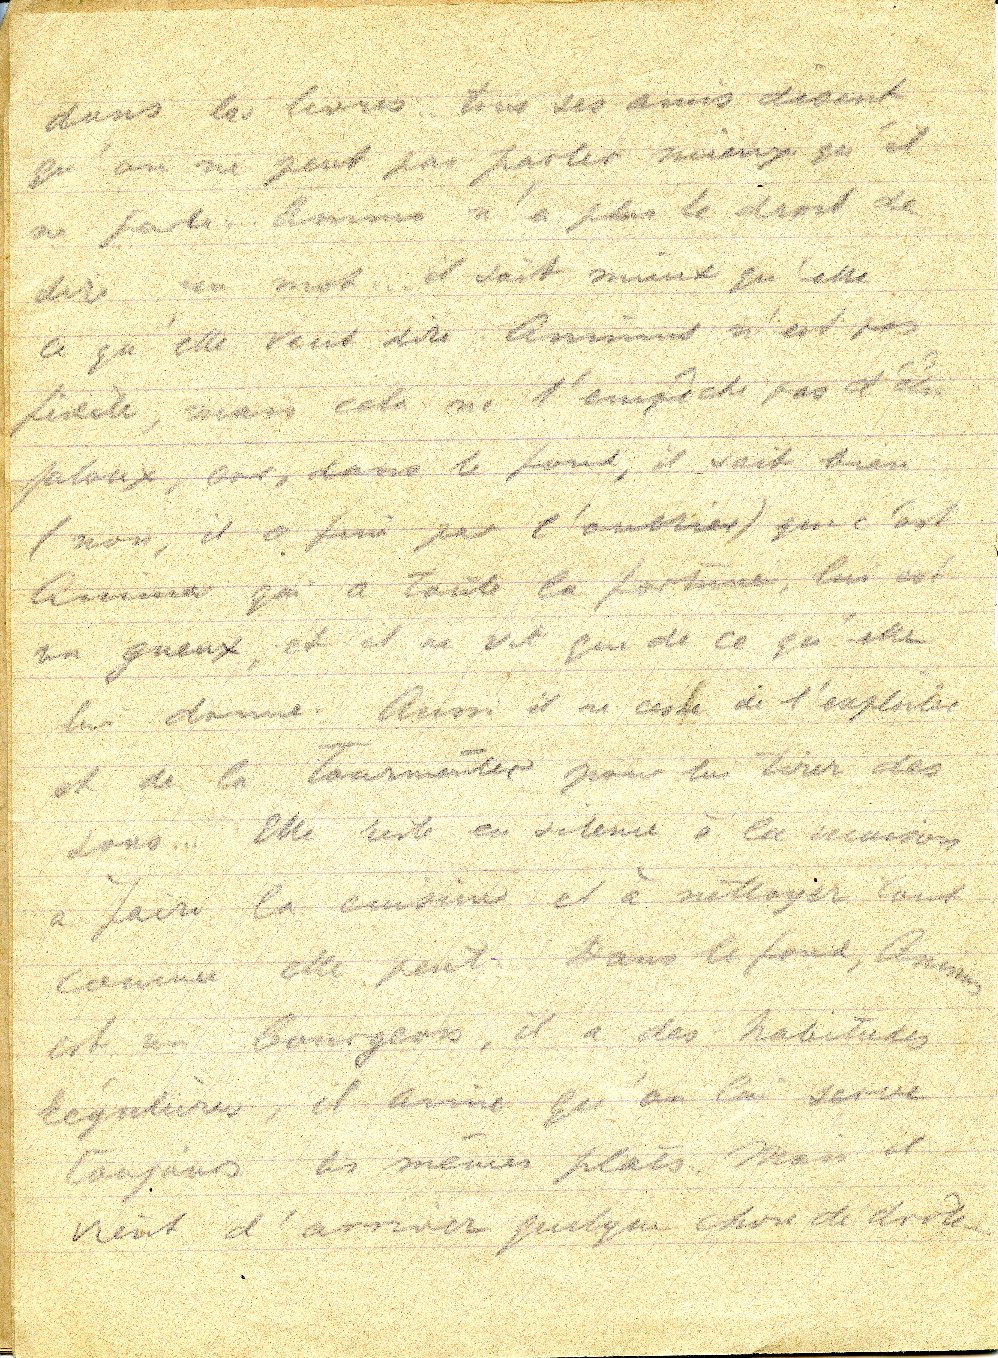 dans les livres. tous ses amis disent
qu'on ne peut pas parler mieux qu'il
ne parle. Anima n'a plus le droit de
dire un mot... il sait mieux qu'elle
ce qu'elle veut dire Animus n'est pas
fidèle, mais cela ne l'empêche pas d'être
jaloux, car, dans le fond, il sait bien
(non, il a fini par l'oublier) que c'est
Anima qui a toute la fortune, lui est
un gueux, et il ne vit que de ce qu'elle
lui donne. Aussi il ne cesse de l'exploiter
et de la tourmenter pour lui tirer des
sous... Elle reste en silence à la maison
à faire la cuisine et à nettoyer tout
comme elle peut. Dans le fond, Animus
est un bourgeois, il a des habitudes
régulières, il aime qu'on lui serve
toujours les mêmes plats. Mais il
vient d'arriver quelque chose de drôle